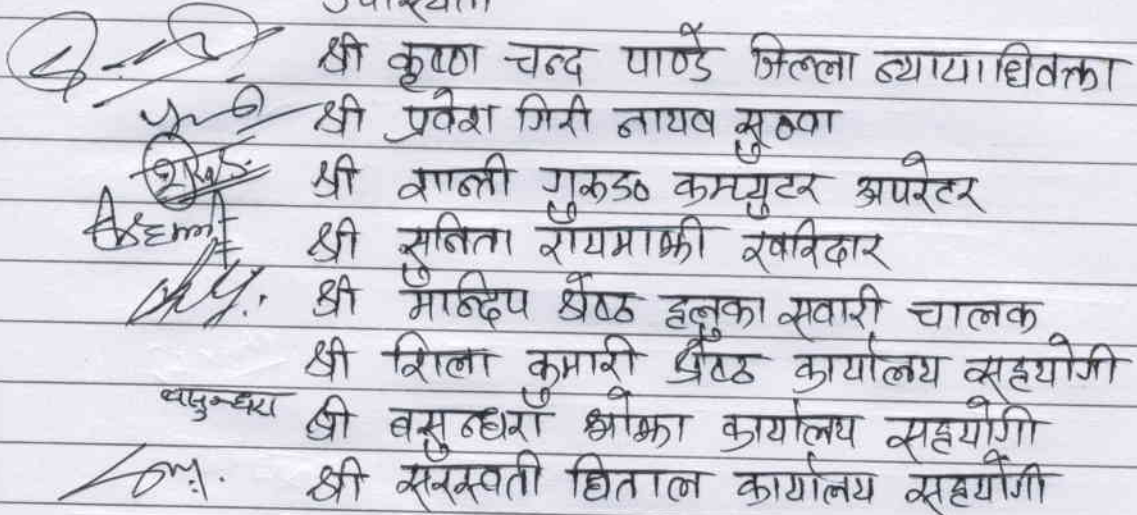 उपस्थिती
श्री कृष्ण चन्द पाण्डे जिल्ला न्यायाधिवक्ता
श्री प्रवेश गिरी नायव सुव्वा
श्री शान्ती गुरूङ कम्प्युटर अपरेटर
श्री सुनिता रायमाझी खरिदार
श्री मान्दिप श्रेष्ठ हलुका सवारी चालक
श्री शिला कुमारी श्रेष्ठ कार्यालय सहयोगी
वसुन्धरा श्री वसुन्धरा ओझा कार्यालय सहयोगी
श्री सरस्वती धिताल कार्यालय सहयोगी